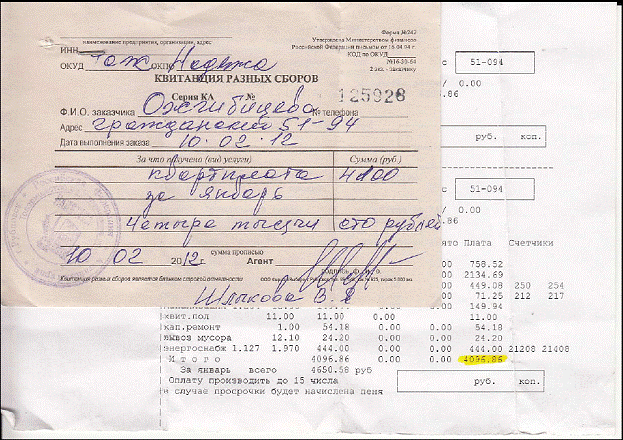 наименование предприятия, организации, адрес
Форма №242
Утверждена Министерством финансов
Российской Федерации письмом от 16.04.94 г.
КОД по ОКУД
№16-30-64
2 экз. - заказчику
ИНН
ОКУД Тсж ОКПО Надежда
КВИТАНЦИЯ РАЗНЫХ СБОРОВ
Серия КА № 125926
Ф.И.О. заказчика № телефона
Адрес гражданский 51-94
Дата выполнения заказа 10.02.12
За что получено (вид услуги) Сумма (руб.)
квартплата 4100
за январь
Четыре тысячи сто рублей
сумма прописью
10 02 2012 Агент
Квитанция разных сборов является бланком строгой отчетности
Шлыкова В.
51-094
/ 0.00
.86
руб. коп.
51-094
/ 0.00
.86
ято Плата Счетчики
00 758.52
00 2134.69
00 449.08 250 254
00 71.25 212 217
00 149.94
квит.пол 11.00 11.00 0.00 11.00
кап.ремонт 1.00 54.18 0.00 0.00 54.18
вывоз мусора 12.10 24.20 0.00 0.00 24.20
энергоснабж 1.127 1.970 444.00 0.00 0.00 444.00 21208 21408
И т о г о 4096.86 0.00 0.00 4096.86
За январь всего 4650.58 руб
Оплату производить до 15 числа
в случае просрочки будет начислена пеня
руб. коп.